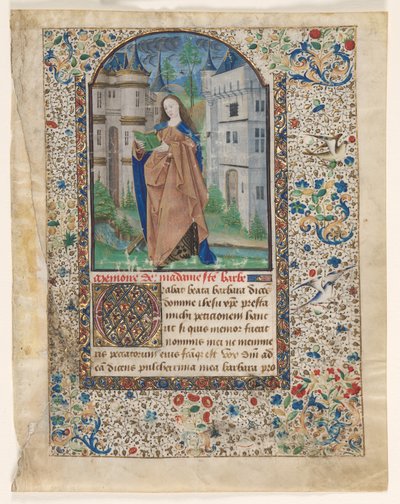 Memoire de madame ste barbe
Orabat beata barbara dicens
domine ihesu xpe presta
michi peticionem hanc
ut si quis memor fuerit
nominis mei ne memine
ris peccatorum eius
ea dicens pulcherima mea barbara